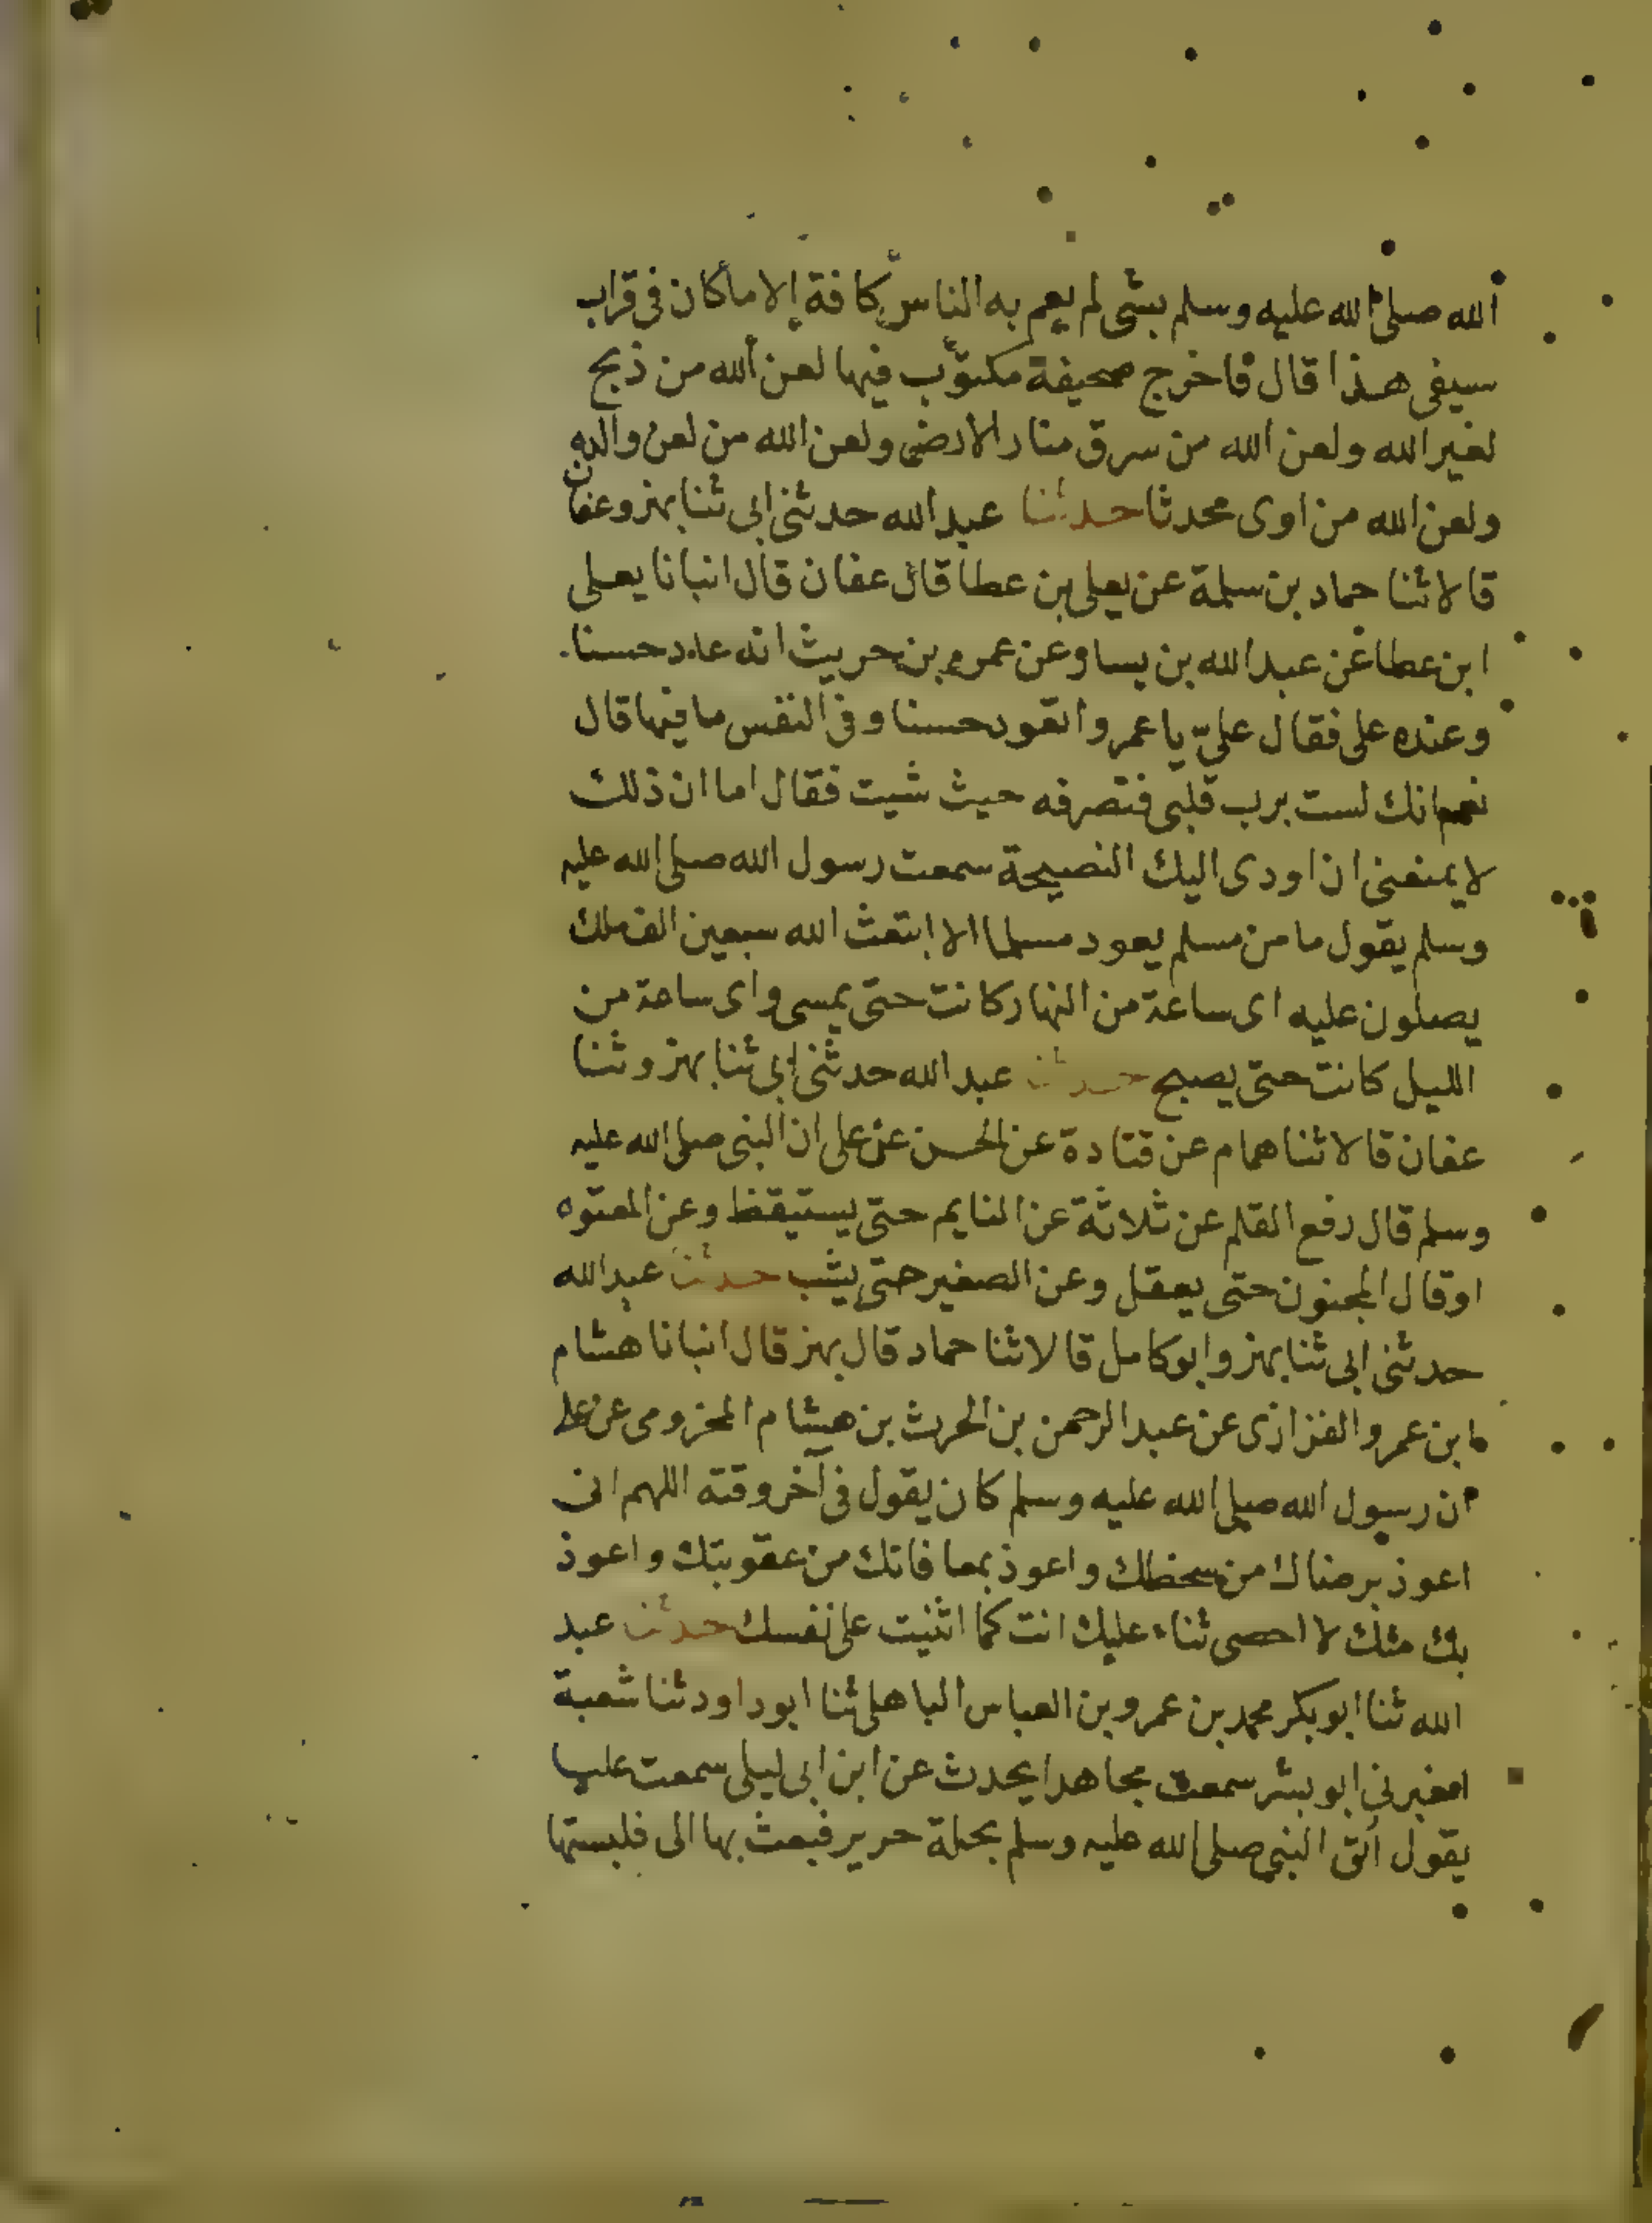 الله صلى الله عليه وسلم بشى لم يعم به الناس كافة إلا ما كان فى قراب
سيفى هذا قال فاخرج صحيفة مكتوب فيها لعن الله من ذبح
لغير الله ولعن الله من سرق منار الارض ولعن الله من لعن والديه
ولعن الله من اوى محدثا حدثنا عبد الله حدثنى ابى ثنا بهز وعفان
قالا ثنا حماد بن سلمة عن يعلى بن عطا قال عفان قال انبانا يعلى
ابن عطا عن عبد الله بن يسار عن عمرو بن حريث انه عاد حسنا
وعنده على فقال علىّ يا عمرو اتعود حسنا وفى النفس ما فيها قال
نعم انك لست برب قلبى فتصرفه حيث شيت فقال اما ان ذلك
لا يمنعنى ان اودى اليك النصيحة سمعت رسول الله صلى الله عليه
وسلم يقول ما من مسلم يعود مسلما الا ابتعث الله سبعين الف ملك
يصلون عليه اى ساعة من النهار كانت حتى يمسى واى ساعة من
الليل كانت حتى يصبح حدثنا عبد الله حدثنى ابى ثنا بهز وثنا
عفان قالا ثنا همام عن قتادة عن الحسن عن على ان النبى صلى الله عليه
وسلم قال رفع القلم عن ثلاثة عن النايم حتى يستيقظ وعن المعتوه
او قال المجنون حتى يعقل وعن الصغير حتى يشب حدثنا عبد الله
حدثنى ابى ثنا بهز وابو كامل قالا ثنا حماد قال بهز قال انبانا هشام
ابن عمرو الفزازى عن عبد الرحمن بن الحرث بن هشام المخزومى عن على
ان رسول الله صلى الله عليه وسلم كان يقول فى آخر وقته اللهم انى
اعوذ برضاك من سخطك واعوذ بمعافاتك من عقوبتك واعوذ
بك منك لا احصى ثناء عليك انت كما اثنيت على نفسك حدثنا عبد
الله ثنا ابو بكر محمد بن عمرو بن العباس الباهلى ثنا ابو داود ثنا شعبة
اخبرنى ابو بشر سمعت مجاهدا يحدث عن ابن ابى ليلى سمعت عليا
يقول أتى النبى صلى الله عليه وسلم بحلة حرير فبعث بها الى فلبستها